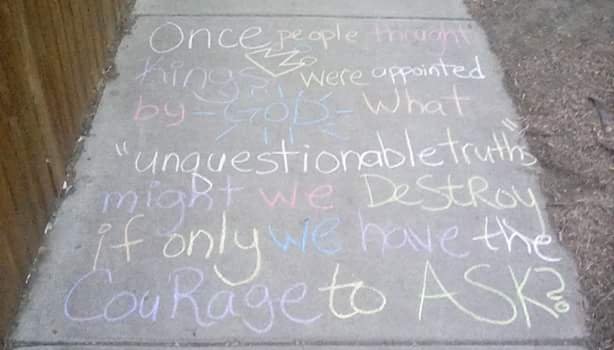 Once people thought
kings were appointed
by -GOD- What
"unquestionable truths"
might we DeStRoy
if only we have the
CouRage to ASK?